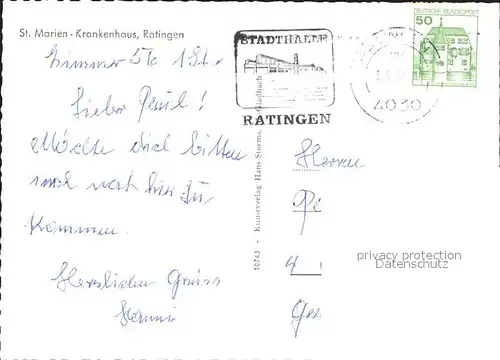 St. Marien - Krankenhaus, Ratingen
Zimmer 576 1 St.
Lieber Paul!
Möchte dich bitten
mal nach hier zu
kommen.
Herzlichen Gruss
STADTHALLE
RATINGEN
4030
DEUTSCHE BUNDESPOST
50
10743 - Kunstverlag Hans Storms, M.-Gladbach
Herrn
Pe
4
Ge
privacy protection
Datenschutz